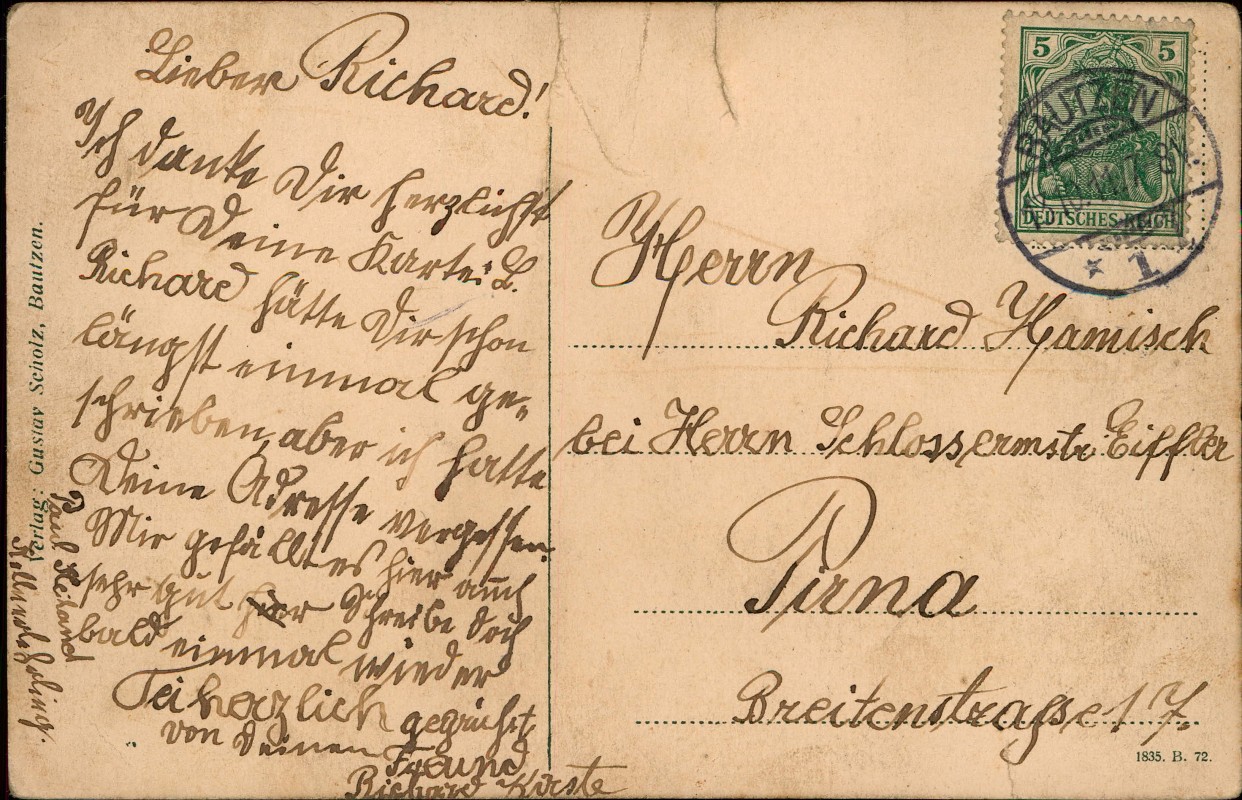 Lieber Richard!
Ich danke Dir herzlichst
für Deine Karte. L.
Richard hätte Dir schon
längst einmal ge-
schrieben, aber ich hatte
Deine Adresse vergessen.
Mir gefällt es hier auch
sehr gut Schreibe doch
bald einmal wieder
Sei herzlich gegrüßt
von Deinen Freund
Richard Kirste
Paul
Verlag: Gustav Scholz, Bautzen.
5 5
DEUTSCHES REICH
BAUTZEN
* 1
Herrn
Richard Hamisch
bei Herrn Schlossermstr. Eiffler
Pirna
Breitenstraße 17.
1835. B. 72.